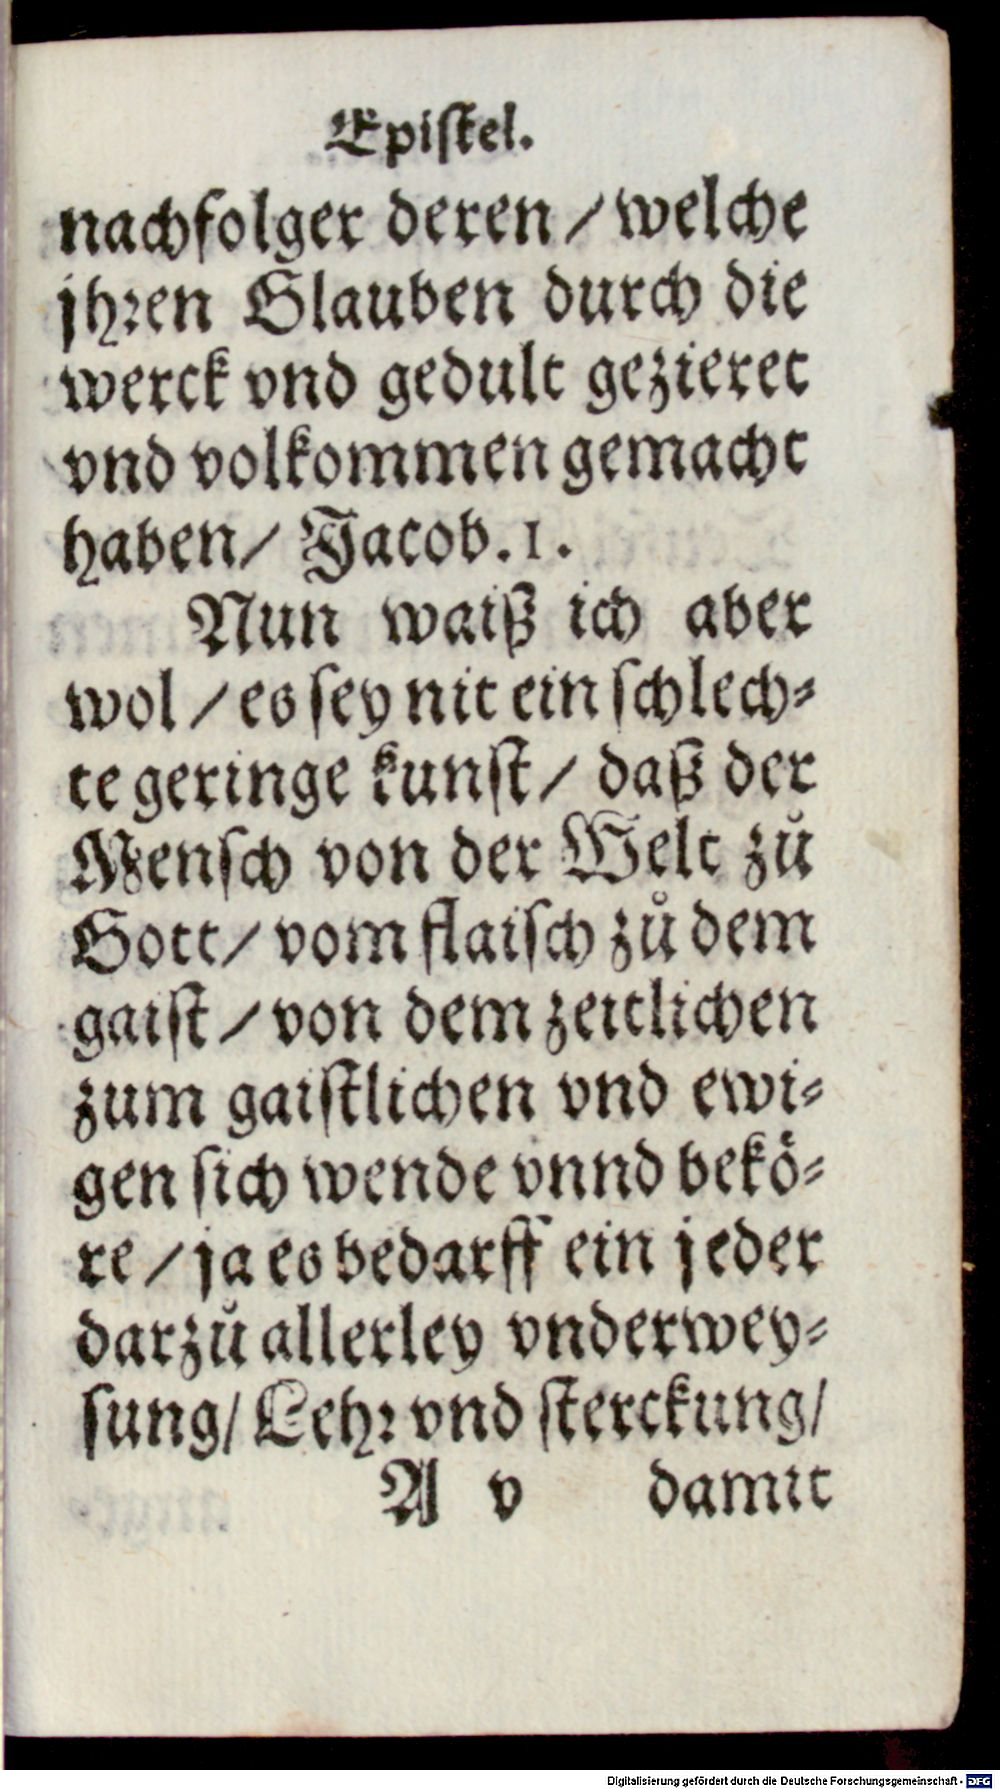 Epiſtel.
nachfolger deren / welche
jhꝛen Glauben durch die
werck vnd gedult gezieret
vnd volkommen gemacht
haben / Jacob. 1.
Nun waiß ich aber
wol / es ſey nit ein ſchlech⸗
te geringe kunſt / daß der
Menſch von der Welt zů
Gott / vom flaiſch zů dem
gaiſt / von dem zeitlichen
zum gaiſtlichen vnd ewi⸗
gen ſich wende vnnd bekö⸗
re / ja es bedarff ein jeder
darzů allerley vnderwey⸗
ſung / Lehꝛ vnd ſterckung /
A v damit
Digitalisierung gefördert durch die Deutsche Forschungsgemeinschaft - DFG